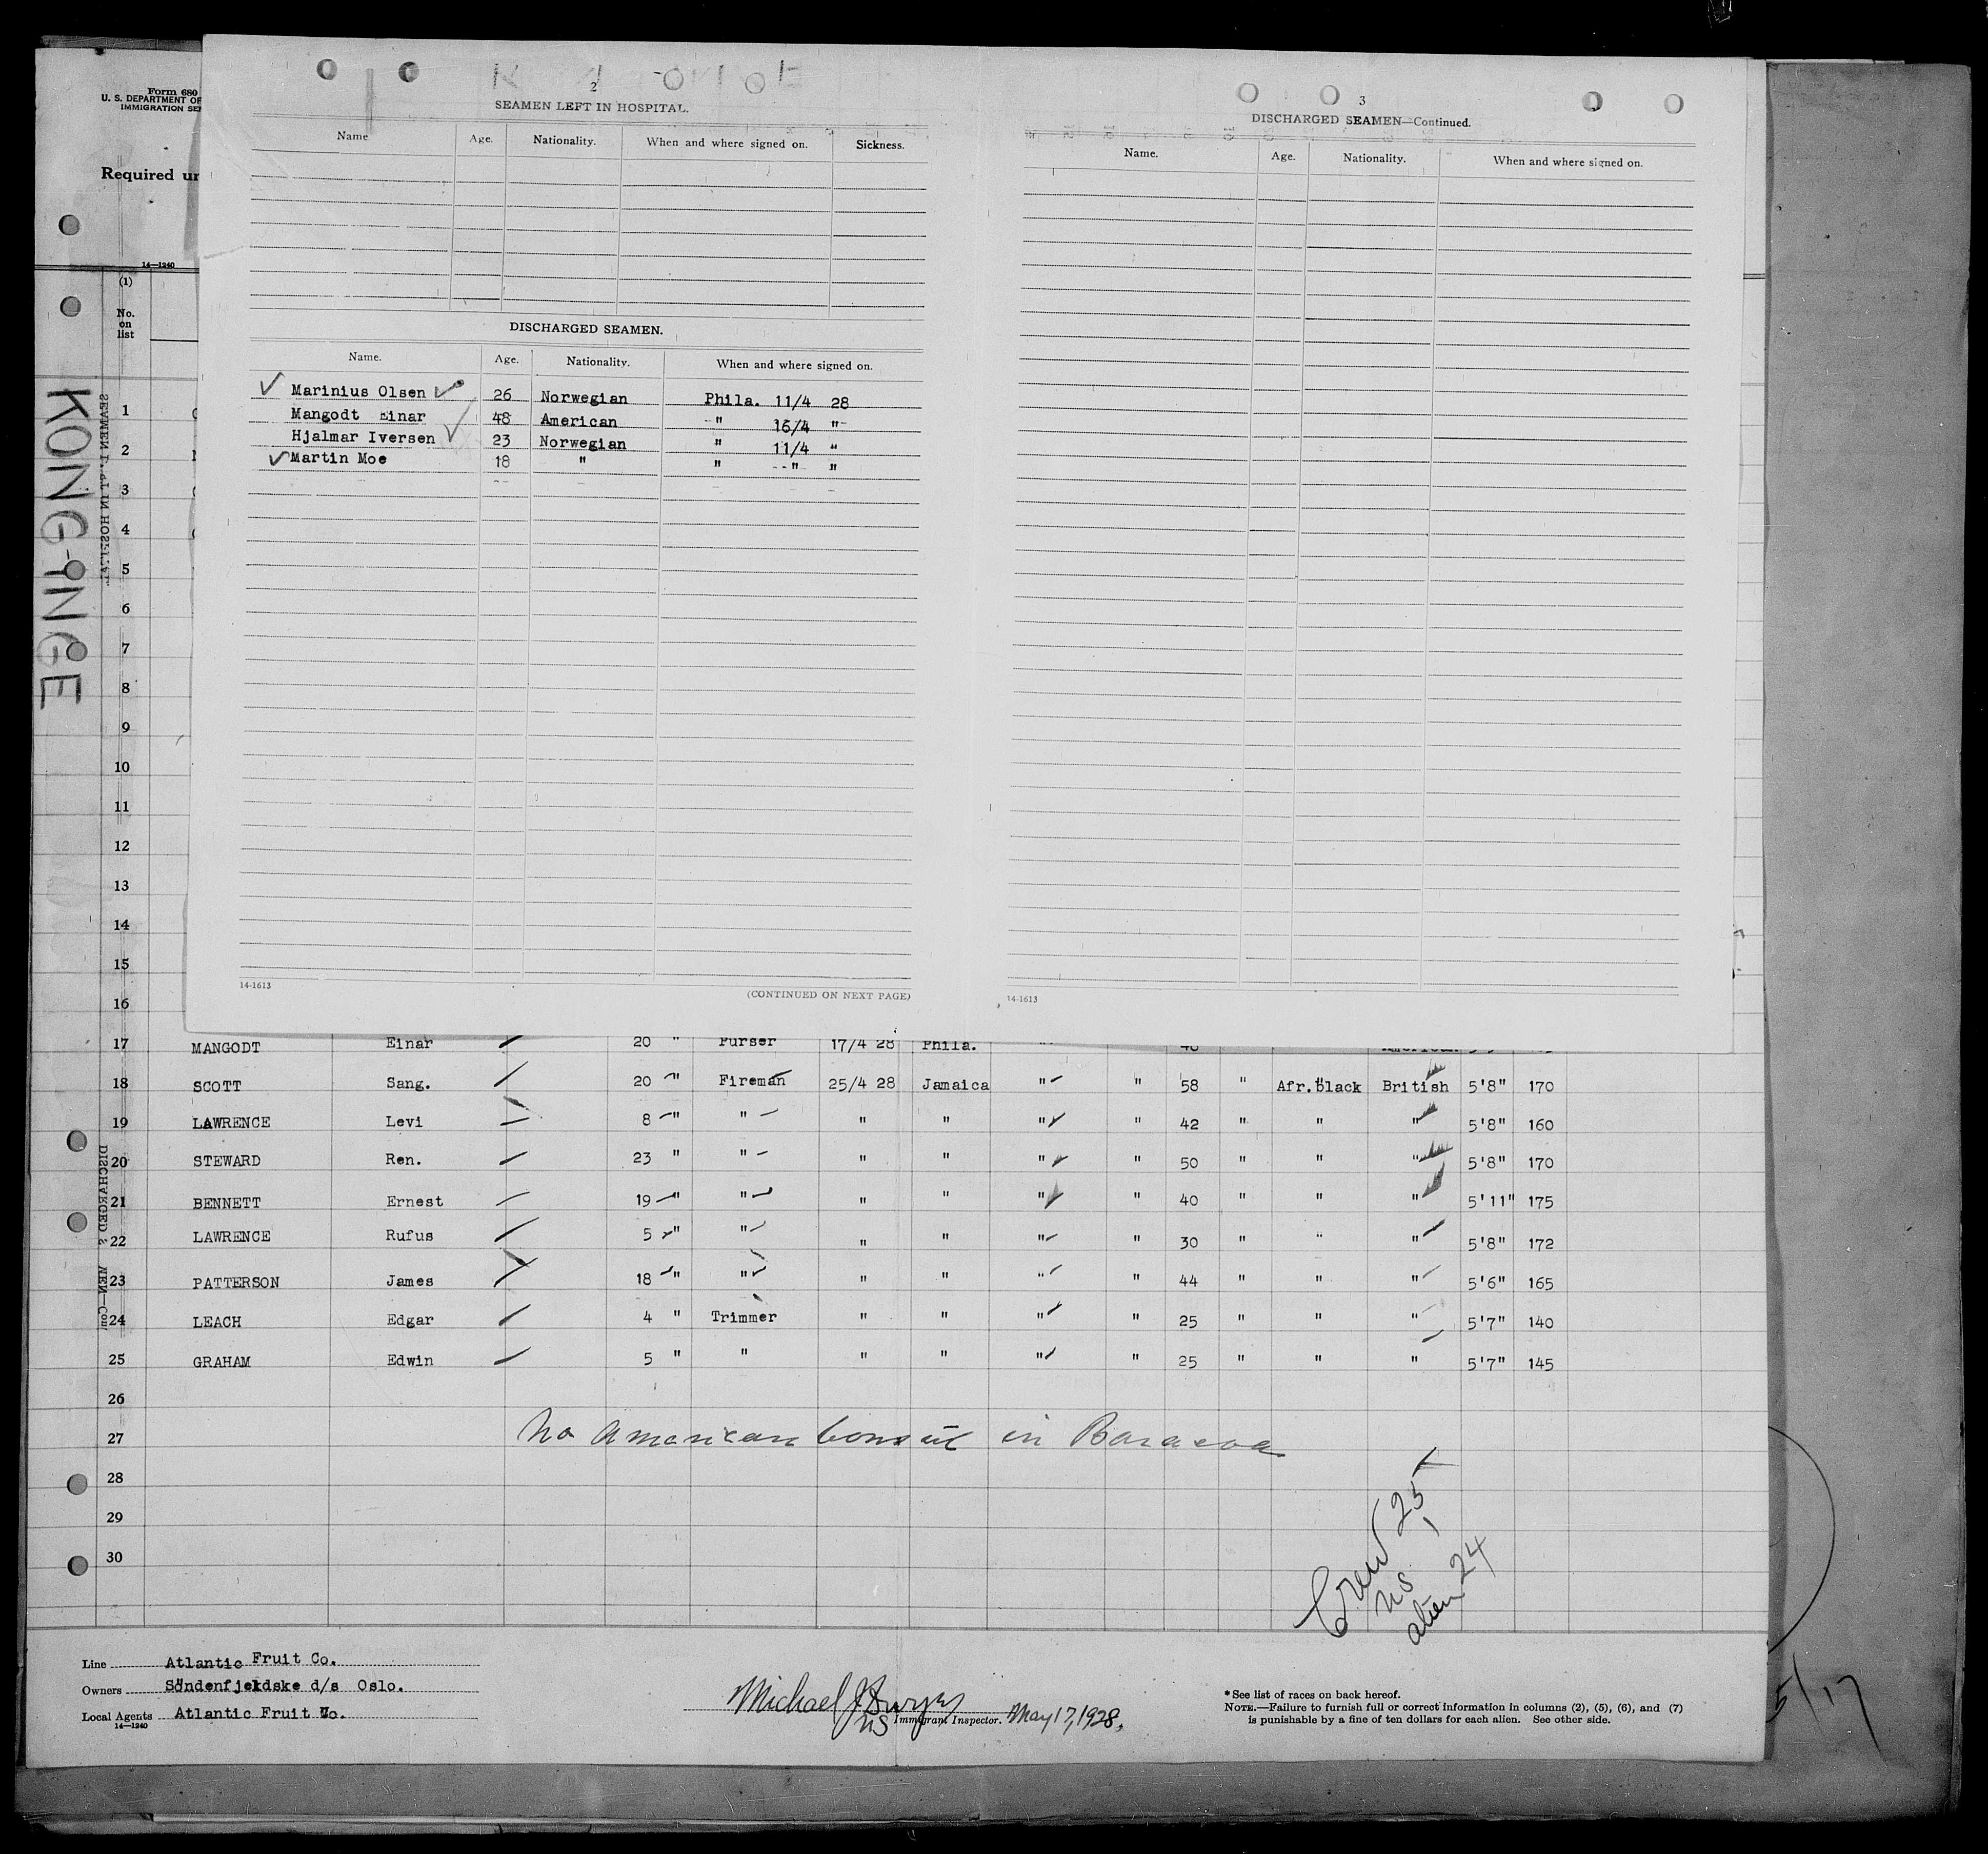 Form 680
U. S. DEPARTMENT OF
IMMIGRATION SE
Required un
14—1240
(1)
No.
on
list
KONG-INGE
2
SEAMEN LEFT IN HOSPITAL.
Name Age. Nationality. When and where signed on. Sickness.
DISCHARGED SEAMEN.
Name. Age. Nationality. When and where signed on.
Marinius Olsen 26 Norwegian Phila. 11/4 28
Mangodt Einar 48 American " 16/4 "
Hjalmar Iversen 23 Norwegian " 11/4 "
Martin Moe 18 " " " "
14-1613
(CONTINUED ON NEXT PAGE)
3
DISCHARGED SEAMEN—Continued.
Name. Age. Nationality. When and where signed on.
14-1613
1
2
3
4
5
6
7
8
9
10
11
12
13
14
15
16
17 MANGODT Einar 20 " Purser 17/4 28 Phila. " " 48 American
18 SCOTT Sang. 20 " Fireman 25/4 28 Jamaica " " 58 " Afr.Black British 5'8" 170
19 LAWRENCE Levi 8 " " " " " " 42 " " " 5'8" 160
20 STEWARD Ren. 23 " " " " " " 50 " " " 5'8" 170
21 BENNETT Ernest 19 " " " " " " 40 " " " 5'11" 175
22 LAWRENCE Rufus 5 " " " " " " 30 " " " 5'8" 172
23 PATTERSON James 18 " " " " " " 44 " " " 5'6" 165
24 LEACH Edgar 4 " Trimmer " " " " 25 " " " 5'7" 140
25 GRAHAM Edwin 5 " " " " " " 25 " " " 5'7" 145
26
27 No American Consul in Baracoa
28
29
30
Crew 25
US 1
alien 24
Line Atlantic Fruit Co.
Owners Söndenfjeldske d/s Oslo.
Local Agents Atlantic Fruit Co.
14—1240
Michael J Dwyer
US Immigrant Inspector. May 17, 1928.
* See list of races on back hereof.
NOTE.—Failure to furnish full or correct information in columns (2), (5), (6), and (7)
is punishable by a fine of ten dollars for each alien. See other side.
5/17